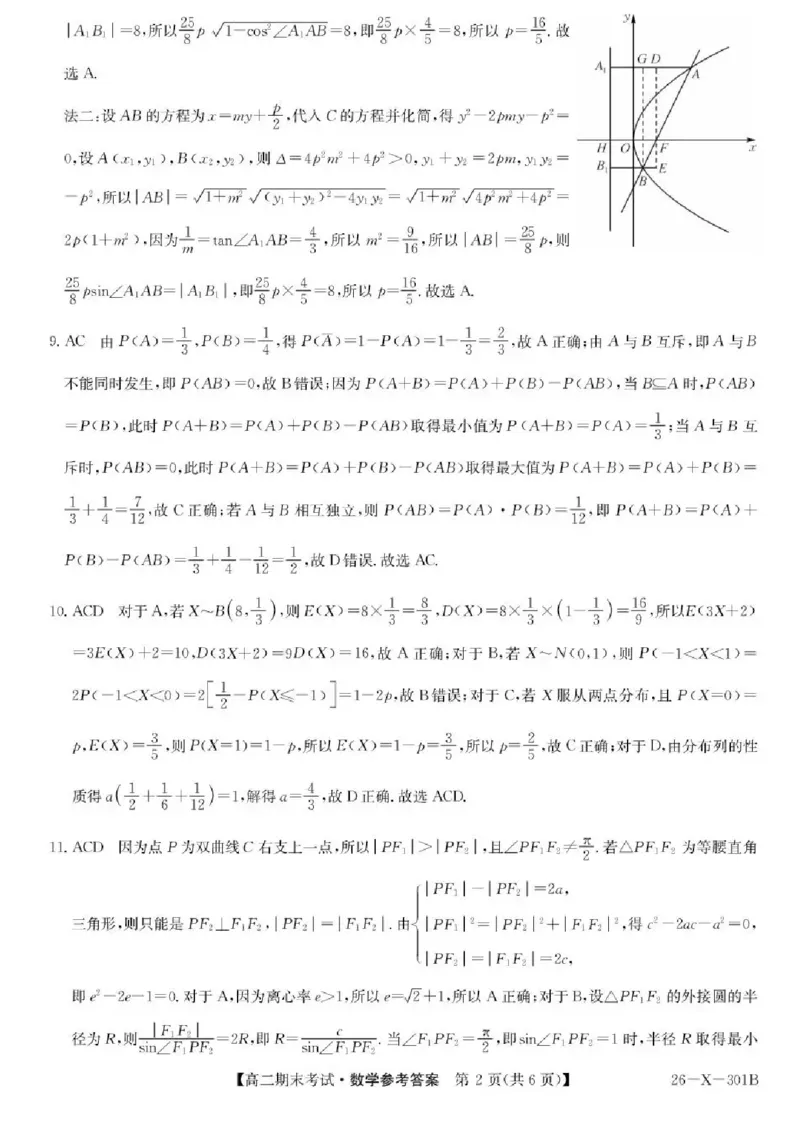 |A₁B₁|=8,所以25/8 p √(1-cos²∠A₁AB)=8,即25/8 p×4/5=8,所以 p=16/5.故
选 A.
法二:设 AB 的方程为 x=my+p/2,代入 C 的方程并化简,得 y²-2pmy-p²=
0,设 A(x₁,y₁),B(x₂,y₂),则 Δ=4p²m²+4p²>0,y₁+y₂=2pm,y₁y₂=
-p²,所以|AB|=√(1+m²) √((y₁+y₂)²-4y₁y₂)=√(1+m²) √(4p²m²+4p²)=
2p(1+m²),因为1/m=tan∠A₁AB=4/3,所以 m²=9/16,所以|AB|=25/8 p,则
25/8 psin∠A₁AB=|A₁B₁|,即25/8 p×4/5=8,所以 p=16/5.故选 A.
y
A₁ G D A
H O F x
B₁ B E
9. AC 由 P(A)=1/3,P(B)=1/4,得 P(A̅)=1-P(A)=1-1/3=2/3,故 A 正确;由 A 与 B 互斥,即 A 与 B
不能同时发生,即 P(AB)=0,故 B 错误;因为 P(A+B)=P(A)+P(B)-P(AB),当 B⊆A 时,P(AB)
=P(B),此时 P(A+B)=P(A)+P(B)-P(AB)取得最小值为 P(A+B)=P(A)=1/3;当 A 与 B 互
斥时,P(AB)=0,此时 P(A+B)=P(A)+P(B)-P(AB)取得最大值为 P(A+B)=P(A)+P(B)=
1/3+1/4=7/12,故 C 正确;若 A 与 B 相互独立,则 P(AB)=P(A)·P(B)=1/12,即 P(A+B)=P(A)+
P(B)-P(AB)=1/3+1/4-1/12=1/2,故 D 错误.故选 AC.
10. ACD 对于 A,若 X~B(8,1/3),则 E(X)=8×1/3=8/3,D(X)=8×1/3×(1-1/3)=16/9,所以E(3X+2)
=3E(X)+2=10,D(3X+2)=9D(X)=16,故 A 正确;对于 B,若 X~N(0,1),则 P(-1<X<1)=
2P(-1<X<0)=2[1/2-P(X≤-1)]=1-2p,故 B 错误;对于 C,若 X 服从两点分布,且 P(X=0)=
p,E(X)=3/5,则 P(X=1)=1-p,所以 E(X)=1-p=3/5,所以 p=2/5,故 C 正确;对于 D,由分布列的性
质得 a(1/2+1/6+1/12)=1,解得 a=4/3,故 D 正确.故选 ACD.
11. ACD 因为点 P 为双曲线 C 右支上一点,所以|PF₁|>|PF₂|,且∠PF₁F₂≠π/2.若△PF₁F₂ 为等腰直角
三角形,则只能是 PF₂⊥F₁F₂,|PF₂|=|F₁F₂|.由{|PF₁|-|PF₂|=2a, |PF₁|²=|PF₂|²+|F₁F₂|², |PF₂|=|F₁F₂|=2c, 得 c²-2ac-a²=0,
即 e²-2e-1=0.对于 A,因为离心率 e>1,所以 e=√2+1,所以 A 正确;对于 B,设△PF₁F₂ 的外接圆的半
径为 R,则|F₁F₂|/sin∠F₁PF₂=2R,即 R=c/sin∠F₁PF₂.当∠F₁PF₂=π/2,即 sin∠F₁PF₂=1 时,半径 R 取得最小
【高二期末考试·数学参考答案 第 2 页(共 6 页)】 26-X-301B